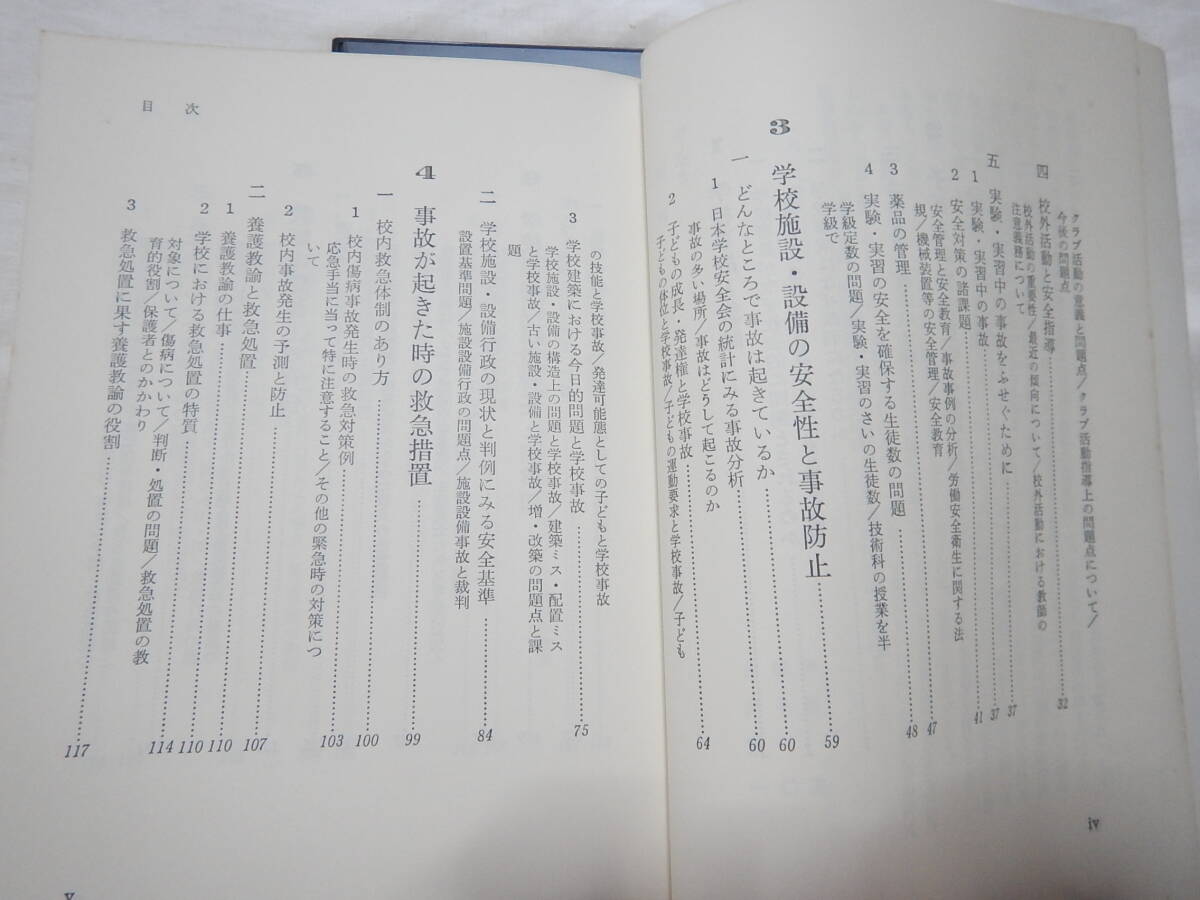 クラブ活動の意義と問題点／クラブ活動指導上の問題点について／
今後の問題点
四 校外活動と安全指導……32
校外活動の重要性／最近の傾向について／校外活動における教師の
注意義務について
五 実験・実習中の事故をふせぐために……37
1 実験・実習中の事故……37
2 安全対策の諸課題……41
安全管理と安全教育／事故事例の分析／労働安全衛生に関する法
規／機械装置等の安全管理／安全教育
3 薬品の管理……47
4 実験・実習の安全を確保する生徒数の問題……48
学級定数の問題／実験・実習のさいの生徒数／技術科の授業を半
学級で
3 学校施設・設備の安全性と事故防止……59
一 どんなところで事故は起きているか……60
1 日本学校安全会の統計にみる事故分析……60
事故の多い場所／事故はどうして起こるのか
2 子どもの成長・発達権と学校事故……64
子どもの体位と学校事故／子どもの運動要求と学校事故／子ども
iv
目次
の技能と学校事故／発達可能態としての子どもと学校事故
3 学校建築における今日的問題と学校事故……75
学校施設・設備の構造上の問題と学校事故／建築ミス・配置ミス
と学校事故／古い施設・設備と学校事故／増・改築の問題点と課
題
二 学校施設・設備行政の現状と判例にみる安全基準……84
設置基準問題／施設設備行政の問題点／施設設備事故と裁判
4 事故が起きた時の救急措置……99
一 校内救急体制のあり方……100
1 校内傷病事故発生時の救急対策例……100
応急手当に当って特に注意すること／その他の緊急時の対策につ
いて
2 校内事故発生の予測と防止……103
二 養護教諭と救急処置……107
1 養護教諭の仕事……110
2 学校における救急処置の特質……110
対象について／傷病について／判断・処置の問題／救急処置の教
育的役割／保護者とのかかわり
3 救急処置に果す養護教諭の役割……117
v